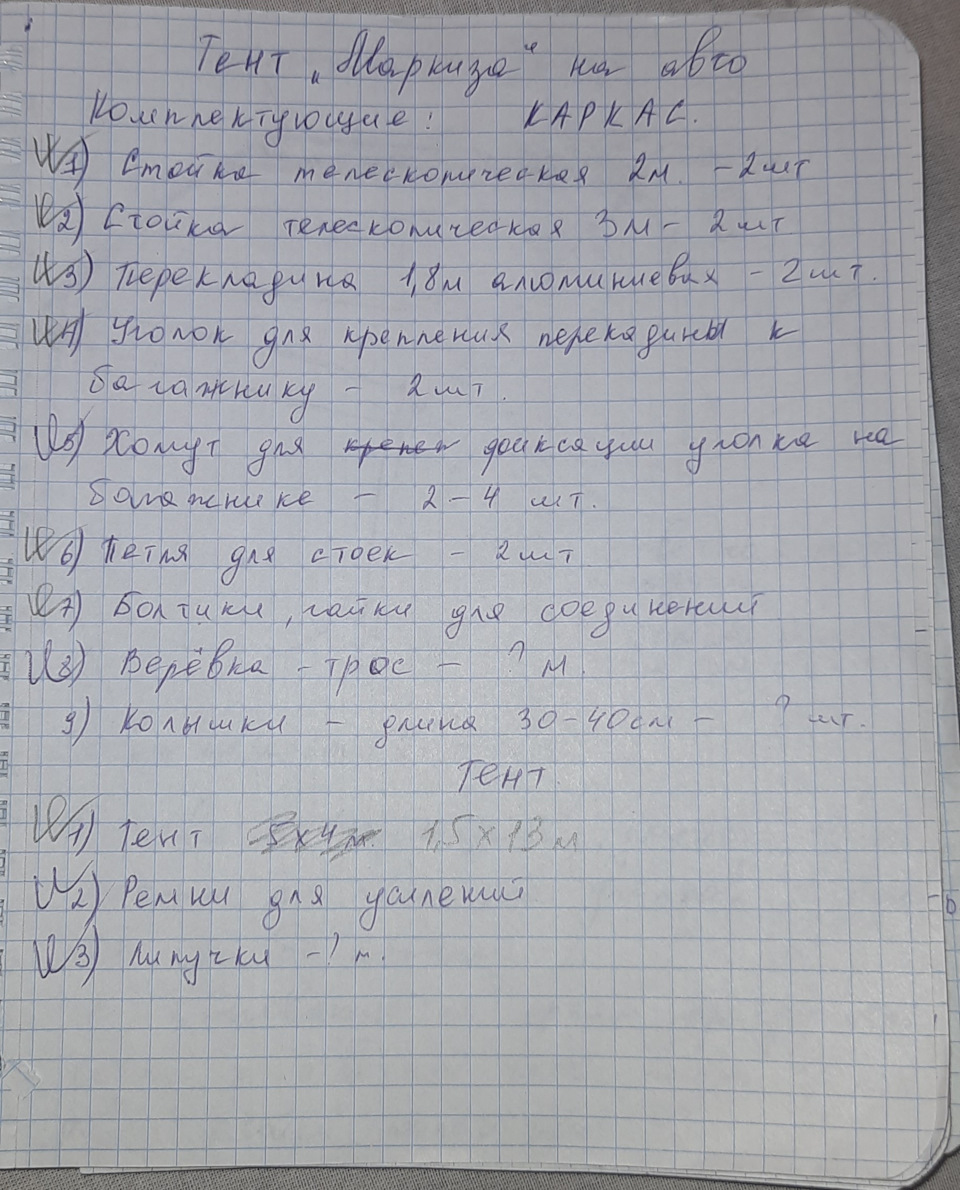 Тент „Маркиза“ на авто
Комплектующие: КАРКАС.
1) Стойка телескопическая 2м. - 2шт
2) Стойка телескопическая 3м - 2шт
3) Перекладина 1,8м алюминиевая - 2шт.
4) Уголок для крепления перекадины к
багажнику - 2шт.
5) Хомут для крепеж фиксации уголка на
багажнике - 2-4 шт.
6) Петля для стоек - 2шт
7) Болтики, гайки для соединений
8) Верёвка - трос - ? м.
9) Колышки - длина 30-40см - ? шт.
Тент.
1) Тент 3х4м. 1,5х13м
2) Ремни для усилений
3) Липучки - ? м.